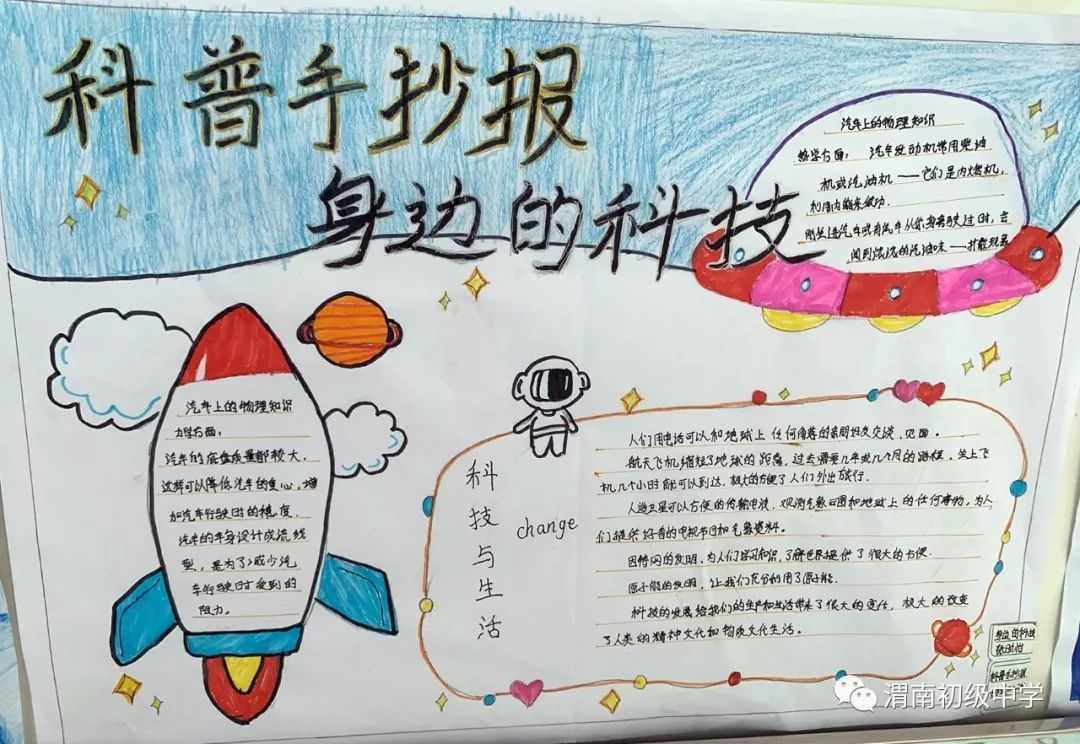 科普手抄报
身边的科技
汽车上的物理知识
热学方面: 汽车发动机常用柴油
机或汽油机——它们是内燃机,
利用内能来做功.
刚坐进汽车或有汽车从你身旁驶过时,会
闻到浓浓的汽油味——扩散现象
汽车上的物理知识
力学方面:
汽车的底盘质量都较大,
这样可以降低汽车的重心,增
加汽车行驶时的稳度.
汽车的车身设计成流线
型,是为了减少汽
车行驶时受到的
阻力。
科技与生活
change
人们用电话可以和地球上任何角落的亲朋好友交谈,见面。
航天飞机缩短了地球的距离,过去需要几年或几个月的路程,坐上飞
机几个小时就可以到达,极大的方便了人们外出旅行.
人造卫星可以方便的传输电波,观测气象云图和地球上的任何事物,为人
们提供好看的电视节目和气象资料。
因特网的发明,为人们学习知识,了解世界提供了很大的方便.
原子能的发明,让我们充分利用了原子能.
科技的发展给我们的生产和生活带来了很大的变化,极大的改变
了人类的精神文化和物质文化生活。
身边的科技
科普手抄报
渭南初级中学